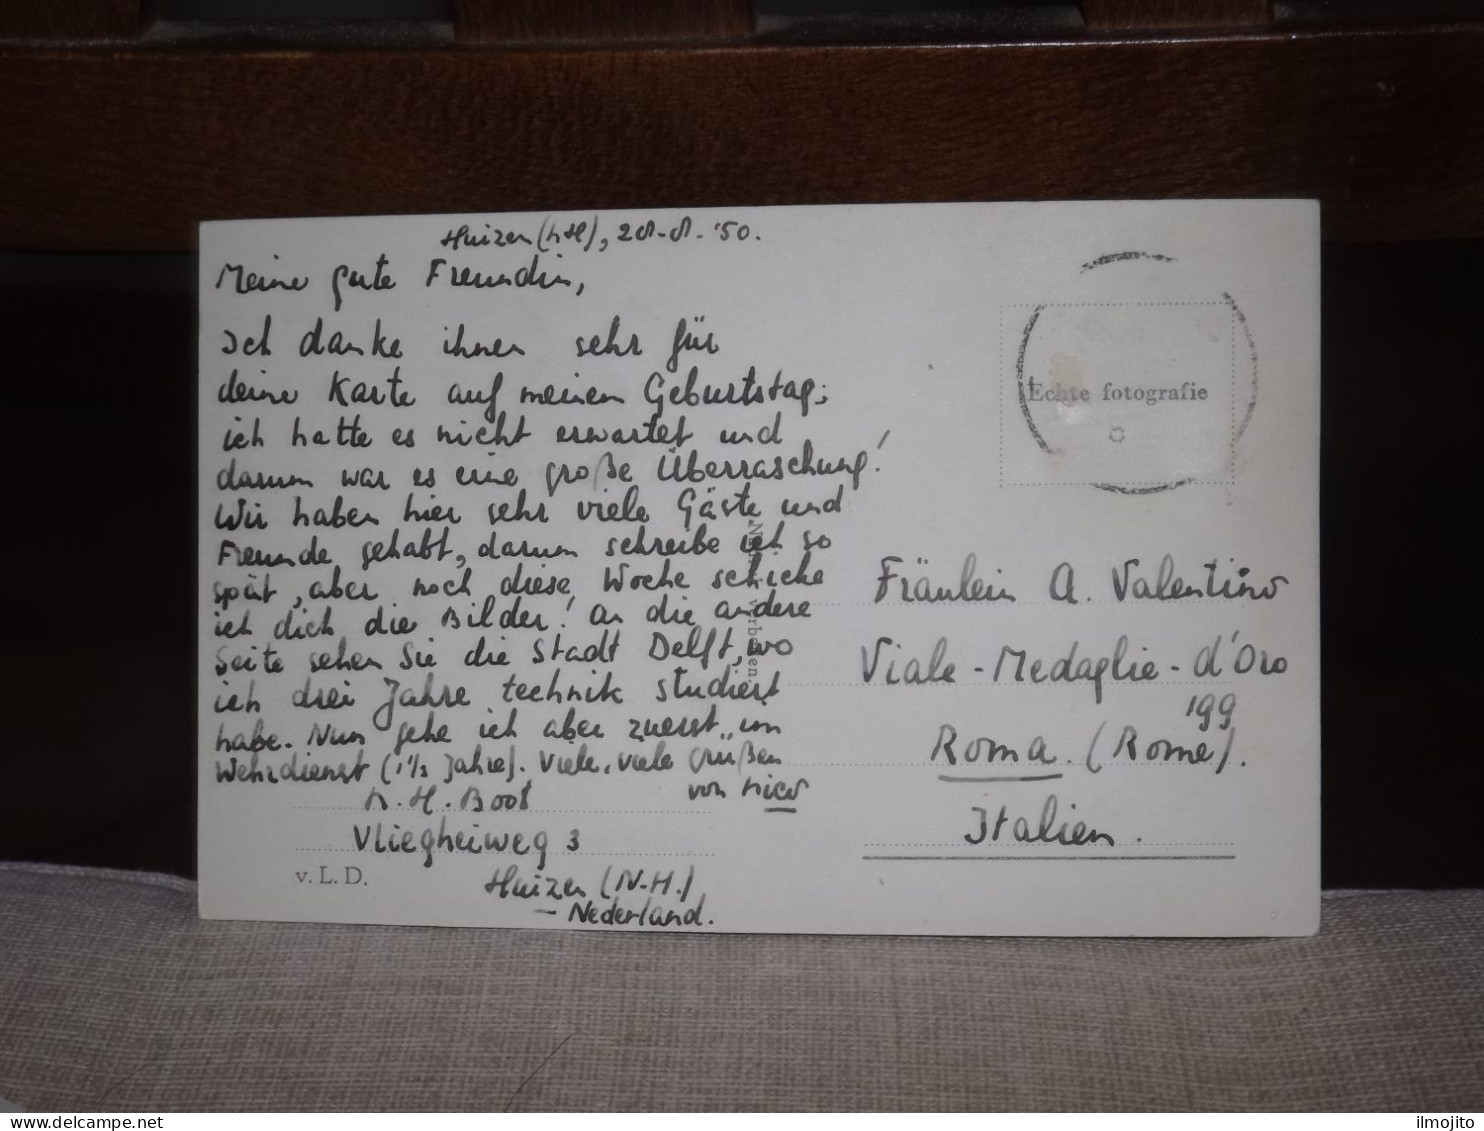 Huizen (NH), 28-8-'50.
Meine gute Freundin,
Ich danke ihnen sehr für
deine Karte auf meinen Geburtstag;
ich hatte es nicht erwartet und
darum war es eine große Überraschung!
Wir haben hier sehr viele Gäste und
Freunde gehabt, darum schreibe ich so
spät, aber noch diese Woche schicke
ich dich die Bilder! An die andere
Seite sehen Sie die Stadt Delft, wo
ich drei Jahre technik studiert
habe. Nun gehe ich aber zuerst in
Wehrdienst (1½ Jahre). Viele, viele Grüßen
von Nico
N. H. Boot
Vliegheiweg 3
Huizen (N.H.)
- Nederland.
v. L. D.
Echte fotografie
Fräulein A. Valentino
Viale-Medaglie-d'Oro
199
Roma. (Rome).
Italien.